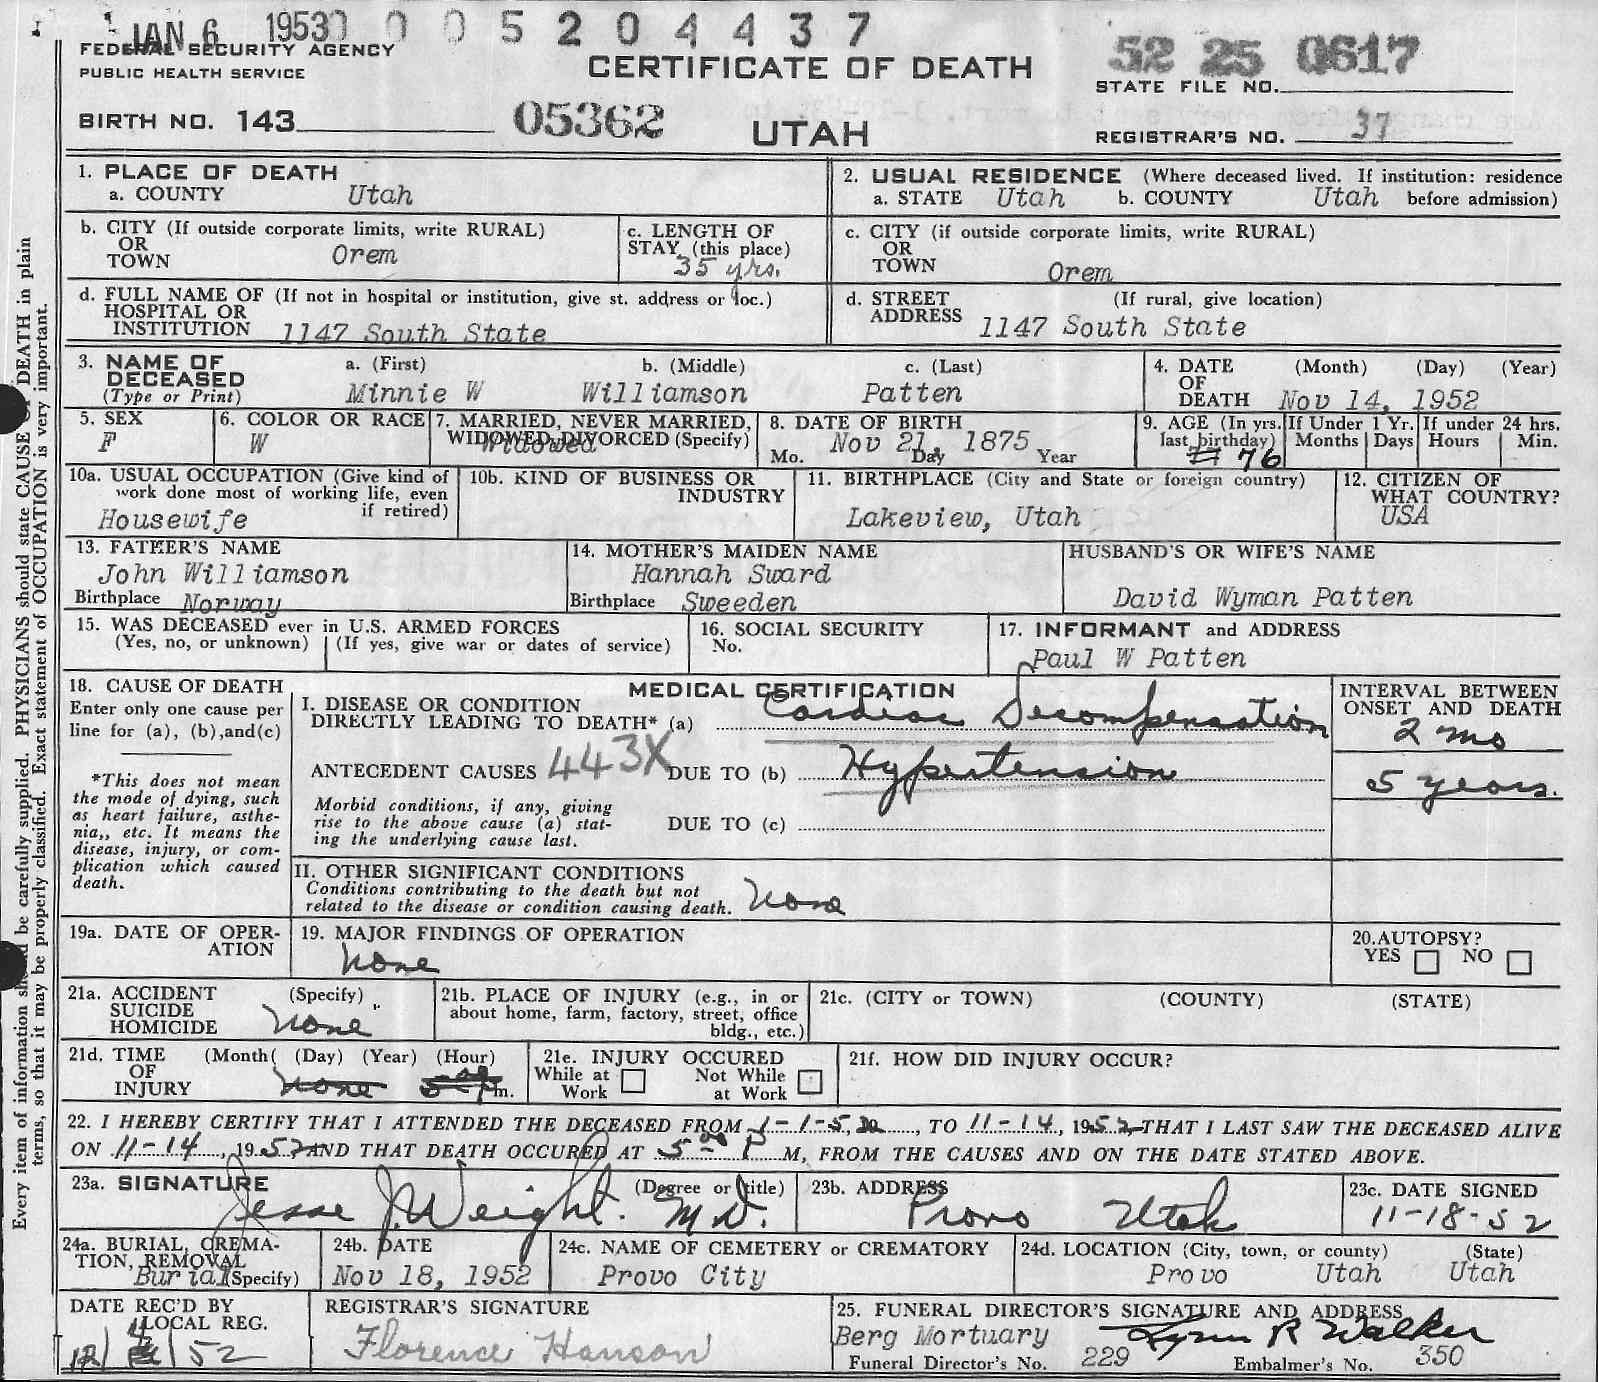 JAN 6 1953 0 0 0 5 2 0 4 4 3 7
FEDERAL SECURITY AGENCY
PUBLIC HEALTH SERVICE
CERTIFICATE OF DEATH
52 25 0617
STATE FILE NO.
BIRTH NO. 143
05362
UTAH
REGISTRAR'S NO. 37
1. PLACE OF DEATH
a. COUNTY Utah
2. USUAL RESIDENCE (Where deceased lived. If institution: residence
a. STATE Utah b. COUNTY Utah before admission)
b. CITY (If outside corporate limits, write RURAL)
OR
TOWN Orem
c. LENGTH OF
STAY (this place)
35 yrs.
c. CITY (if outside corporate limits, write RURAL)
OR
TOWN Orem
d. FULL NAME OF (If not in hospital or institution, give st. address or loc.)
HOSPITAL OR
INSTITUTION 1147 South State
d. STREET (If rural, give location)
ADDRESS 1147 South State
3. NAME OF
DECEASED
(Type or Print)
a. (First) b. (Middle) c. (Last)
Minnie W Williamson Patten
4. DATE (Month) (Day) (Year)
OF
DEATH Nov 14, 1952
5. SEX
F
6. COLOR OR RACE
W
7. MARRIED, NEVER MARRIED,
WIDOWED, DIVORCED (Specify)
Widowed
8. DATE OF BIRTH
Nov 21, 1875
Mo. Day Year
9. AGE (In yrs. If Under 1 Yr. If under 24 hrs.
last birthday) Months Days Hours Min.
77 76
10a. USUAL OCCUPATION (Give kind of
work done most of working life, even
if retired)
Housewife
10b. KIND OF BUSINESS OR
INDUSTRY
11. BIRTHPLACE (City and State or foreign country)
Lakeview, Utah
12. CITIZEN OF
WHAT COUNTRY?
USA
13. FATHER'S NAME
John Williamson
Birthplace Norway
14. MOTHER'S MAIDEN NAME
Hannah Sward
Birthplace Sweeden
HUSBAND'S OR WIFE'S NAME
David Wyman Patten
15. WAS DECEASED ever in U.S. ARMED FORCES
(Yes, no, or unknown) (If yes, give war or dates of service)
16. SOCIAL SECURITY
No.
17. INFORMANT and ADDRESS
Paul W Patten
18. CAUSE OF DEATH
Enter only one cause per
line for (a), (b),and(c)
*This does not mean
the mode of dying, such
as heart failure, asthe-
nia,, etc. It means the
disease, injury, or com-
plication which caused
death.
MEDICAL CERTIFICATION
I. DISEASE OR CONDITION
DIRECTLY LEADING TO DEATH* (a) Cardiac Decompensation
ANTECEDENT CAUSES 443X DUE TO (b) Hypertension
Morbid conditions, if any, giving
rise to the above cause (a) stat-
ing the underlying cause last.
DUE TO (c)
INTERVAL BETWEEN
ONSET AND DEATH
2 mo
5 years.
II. OTHER SIGNIFICANT CONDITIONS
Conditions contributing to the death but not
related to the disease or condition causing death. None
19a. DATE OF OPER-
ATION
19. MAJOR FINDINGS OF OPERATION
None
20.AUTOPSY?
YES NO
21a. ACCIDENT (Specify)
SUICIDE
HOMICIDE None
21b. PLACE OF INJURY (e.g., in or
about home, farm, factory, street, office
bldg., etc.)
21c. (CITY or TOWN) (COUNTY) (STATE)
21d. TIME (Month( (Day) (Year) (Hour)
OF
INJURY None 5 00 m.
21e. INJURY OCCURED
While at Not While
Work at Work
21f. HOW DID INJURY OCCUR?
22. I HEREBY CERTIFY THAT I ATTENDED THE DECEASED FROM 1-1-5, TO 11-14, 1952, THAT I LAST SAW THE DECEASED ALIVE
ON 11-14, 1952 AND THAT DEATH OCCURED AT 5 00 P M, FROM THE CAUSES AND ON THE DATE STATED ABOVE.
23a. SIGNATURE (Degree or title)
Jesse J. Weight. M.D.
23b. ADDRESS
Provo Utah
23c. DATE SIGNED
11-18-52
24a. BURIAL, CREMA-
TION, REMOVAL
Burial (Specify)
24b. DATE
Nov 18, 1952
24c. NAME OF CEMETERY or CREMATORY
Provo City
24d. LOCATION (City, town, or county) (State)
Provo Utah Utah
DATE REC'D BY
LOCAL REG.
12 4 52
REGISTRAR'S SIGNATURE
Florence Hanson
25. FUNERAL DIRECTOR'S SIGNATURE AND ADDRESS
Berg Mortuary Lynn R Walker
Funeral Director's No. 229 Embalmer's No. 350
Every item of information should be carefully supplied. PHYSICIANS should state CAUSE OF DEATH in plain
terms, so that it may be properly classified. Exact statement of OCCUPATION is very important.